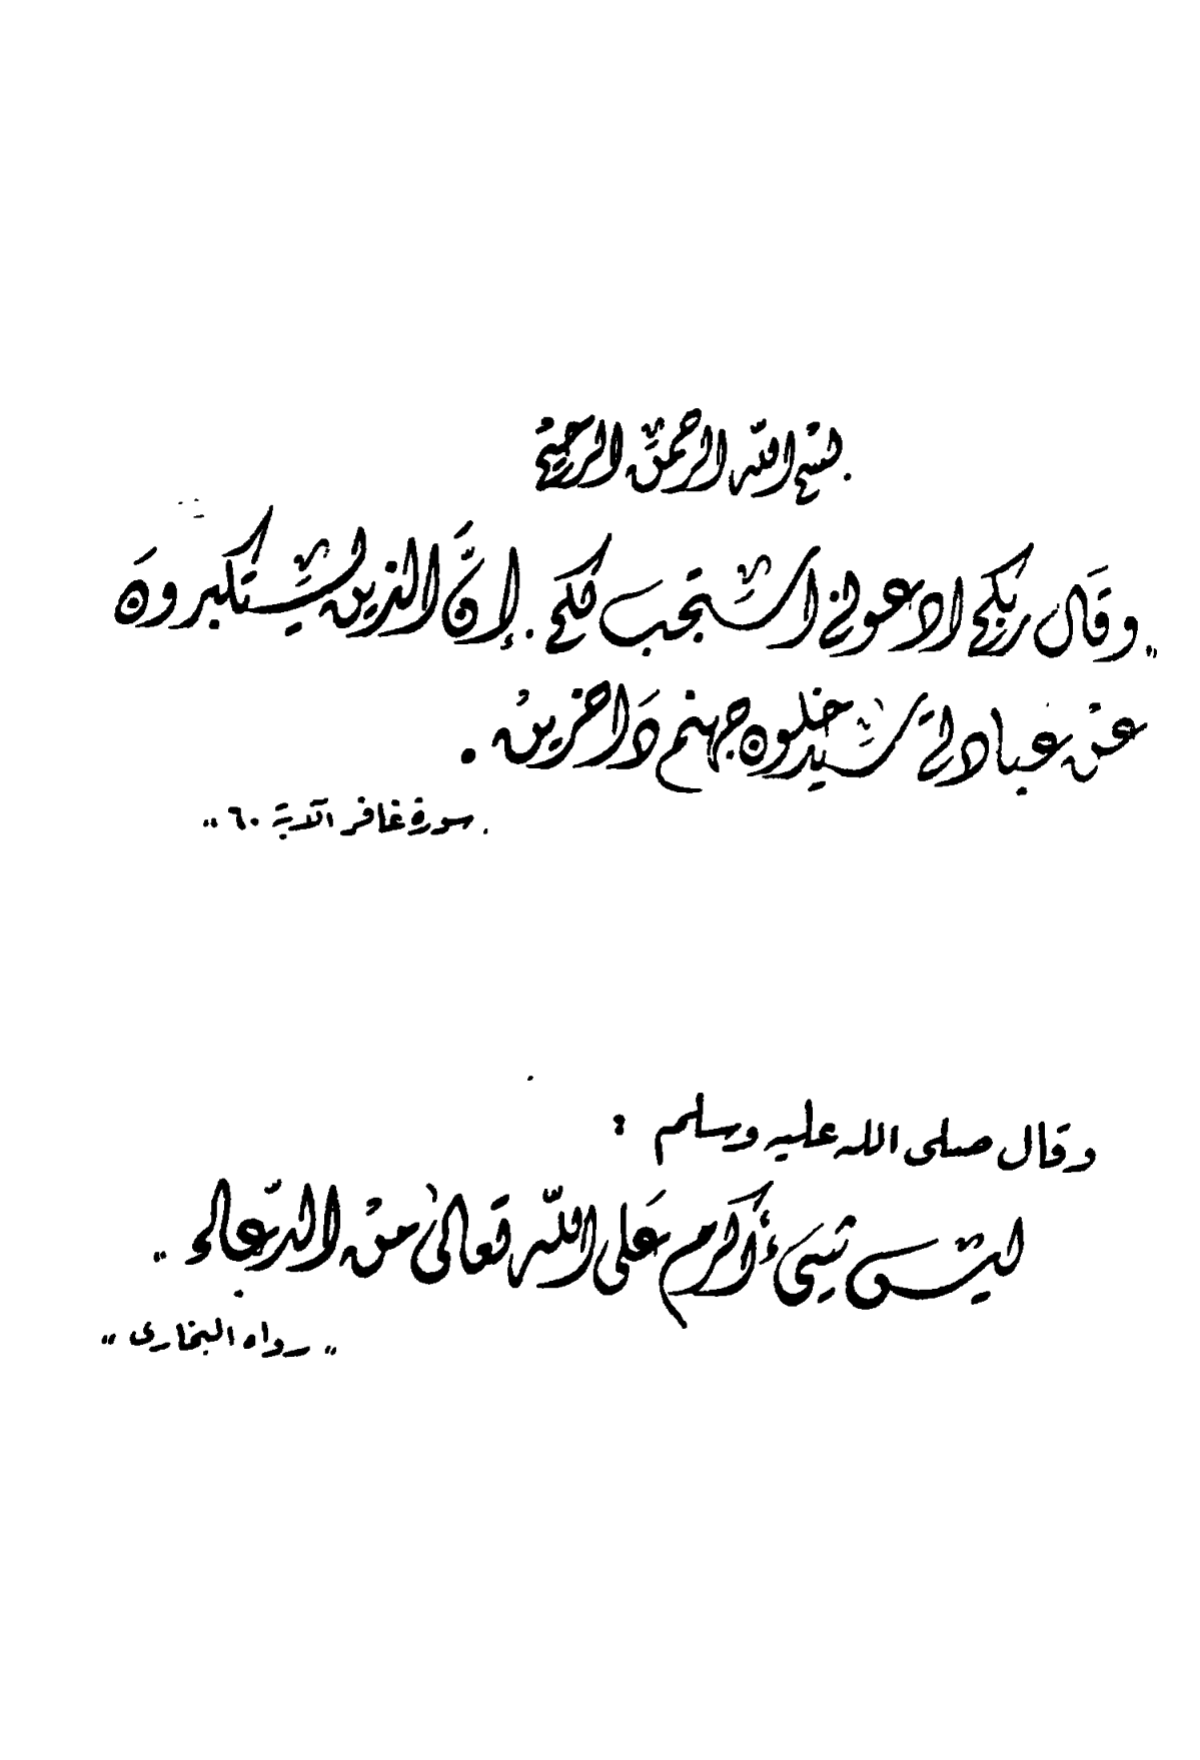 بسم الله الرحمن الرحيم
"وقال ربكم ادعوني أستجب لكم . إنَّ الذين يستكبرونَ
عنْ عبادتي سيدخلون جهنم دَاخرين .
سورة غافر الآية ٦٠"
وقال صلى الله عليه وسلم :
ليس شيءَ أكرم عَلى الله تعالى منْ الدّعاء "
" رواه البخارى "